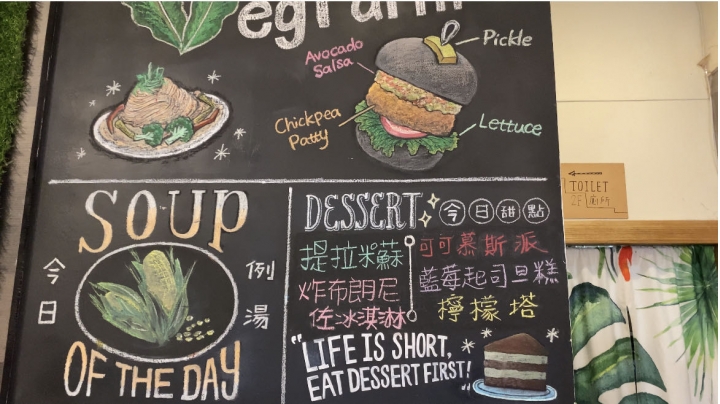 egFarm
Avocado
Salsa
Pickle
Chickpea
Patty
Lettuce
SOUP
今日
例湯
OF THE DAY
DESSERT 今日甜點
提拉米蘇
炸布朗尼
佐冰淇淋
可可慕斯派
藍莓起司旦糕
檸檬塔
"LIFE IS SHORT,
EAT DESSERT FIRST!"
TOILET
2F 廁所